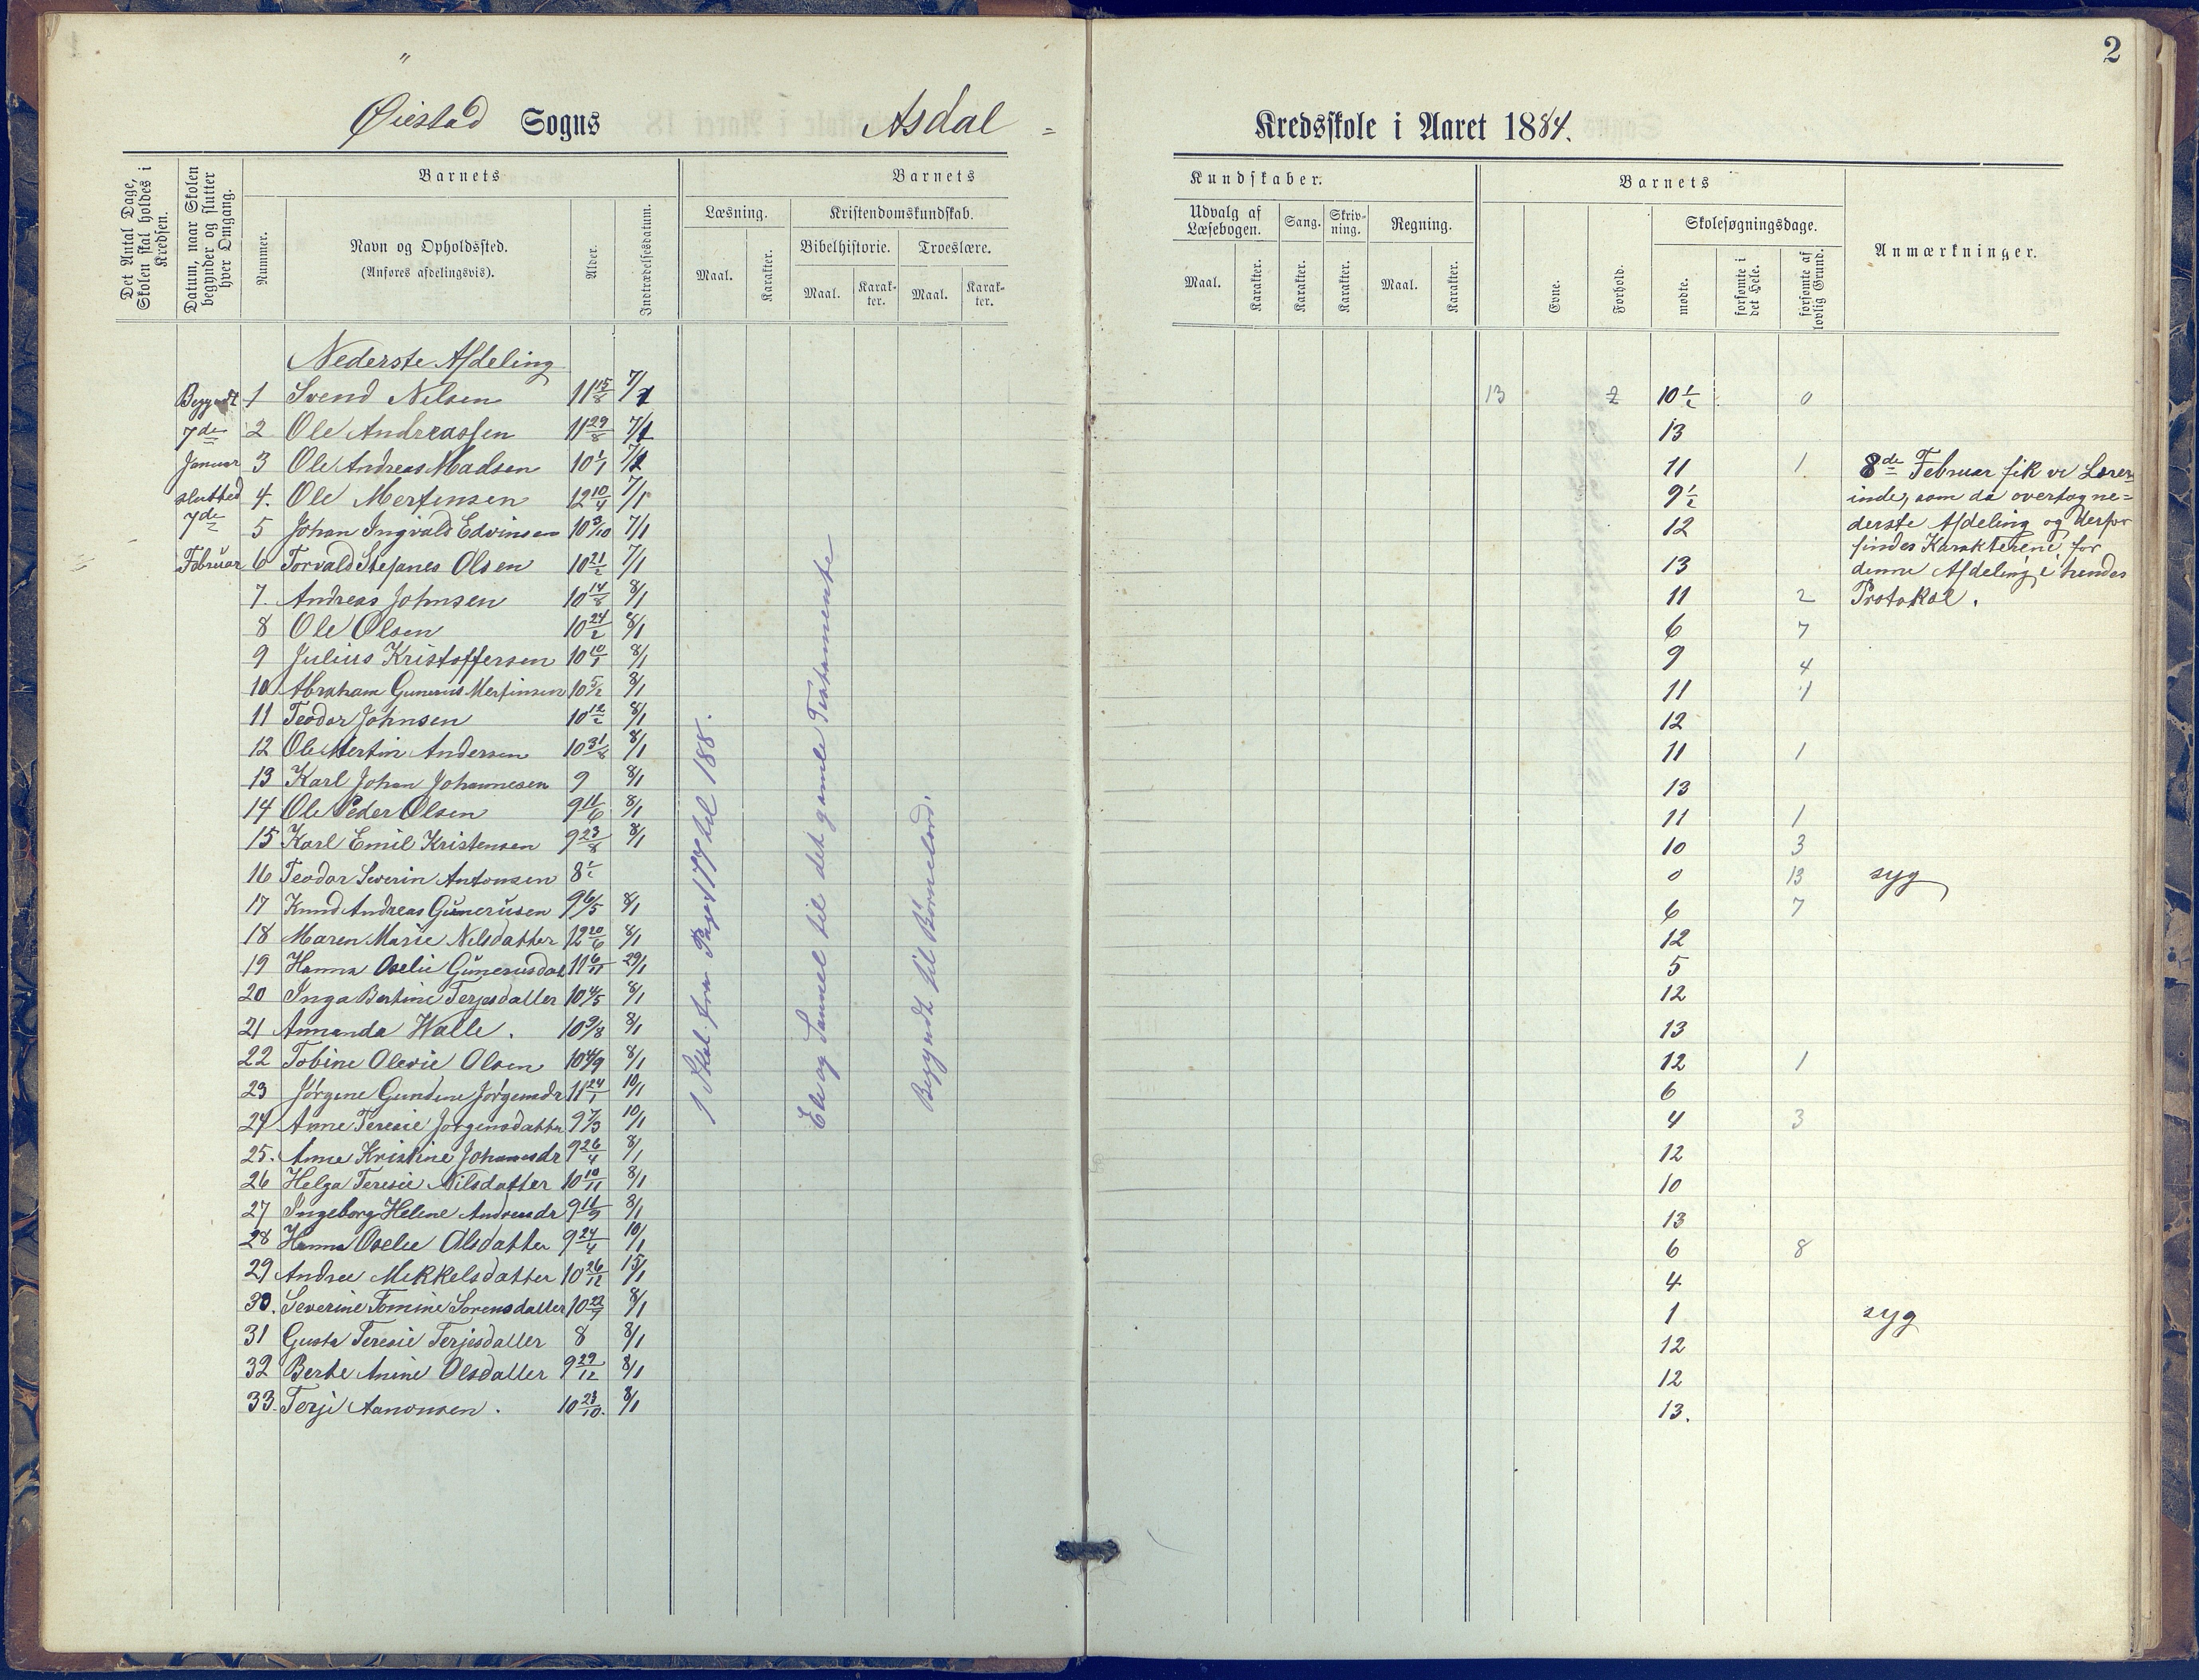 2
Øiestad Sogns Asdal Kredsskole i Aaret 1884.
Det Antal Dage, Skolen skal holdes i Kredsen.
Datum, naar Skolen begynder og slutter hver Omgang.
Barnets
Nummer.
Navn og Opholdssted.
(Anføres afdelingsvis).
Alder.
Indtrædelsesdatum.
Barnets
Læsning.
Maal.
Karakter.
Kristendomskundskab.
Bibelhistorie.
Maal.
Karak-ter.
Troeslære.
Maal.
Karak-ter.
Kundskaber.
Udvalg af Læsebogen.
Maal.
Karakter.
Sang.
Karakter.
Skriv-ning.
Karakter.
Regning.
Maal.
Karakter.
Barnets
Evne.
Forhold.
Skolesøgningsdage.
mødte.
forsømte i det Hele.
forsømte af lovlig Grund.
Anmærkninger.
Nederste Afdeling
Begyndt
7de
Januar
slutted
7de
Februar
1 Svend Nilsen 11 15/8 7/1 13 2 10 1/2 0
2 Ole Andreassen 11 29/8 7/1 13
3 Ole Andreas Madsen 10 1/1 7/1 11 1
4. Ole Mertinsen 12 10/4 7/1 9 1/2
5 Johan Ingvald Edvinsen 10 3/10 7/1 12
6 Torvald Stefanes Olsen 10 21/2 7/1 13
7. Andreas Johnsen 10 14/8 8/1 11 2
8 Ole Olsen 10 24/2 8/1 6 7
9 Julius Kristoffersen 10 10/1 8/1 9 4
10 Abraham Gunerius Mertinsen 10 5/2 8/1 11 1
11 Teodor Johnsen 10 12/2 8/1 12
12 Ole Mertin Andersen 10 31/8 8/1 11 1
13 Karl Johan Johannesen 9 8/1 13
14 Ole Peder Olsen 9 11/6 8/1 11 1
15 Karl Emil Kristensen 9 23/8 8/1 10 3
16 Teodor Severin Antonsen 8 1/2 0 13 syg
17 Knud Andreas Gunerusen 9 6/5 8/1 6 7
18 Maren Marie Nilsdatter 12 20/6 8/1 12
19 Hanna Oselie Gunerusdat 11 6/11 29/1 5
20 Inga Bertine Terjesdatter 10 4/5 8/1 12
21 Amanda Walle. 10 9/8 8/1 13
22 Tobine Olevie Olsen 10 4/9 8/1 12 1
23 Jørgine Gundine Jørgensdr 11 24/1 10/1 6
24 Anne Teresie Jørgensdatter 9 7/3 10/1 4 3
25. Anne Kristine Johannesdr 9 26/4 8/1 12
26 Helga Teresie Nilsdatter 10 10/11 8/1 10
27 Ingeborg Helene Andreasdr 9 11/9 8/1 13
28 Hanna Oselie Olsdatter 9 24/4 10/1 6 8
29 Andree Mikkelsdatter 10 26/12 15/1 4
30. Severine Tomine Sørensdatter 10 22/9 8/1 1 syg
31 Gusta Teresie Terjesdatter 8 8/1 12
32 Berte Anine Olsdatter 9 29/12 8/1 12
33. Terje Aanonsen. 10 23/10. 8/1 13.
1 Skol. fra Page 177 til 188.
Eli og Samuel til det gamle Testamente
Begyndt til Børnelærd.
8de Februar fik vi Lærer-
inde, som da overtog ne=
derste Afdeling og derfor
findes Karakterene for
denne Afdeling i hendes
Protokol.